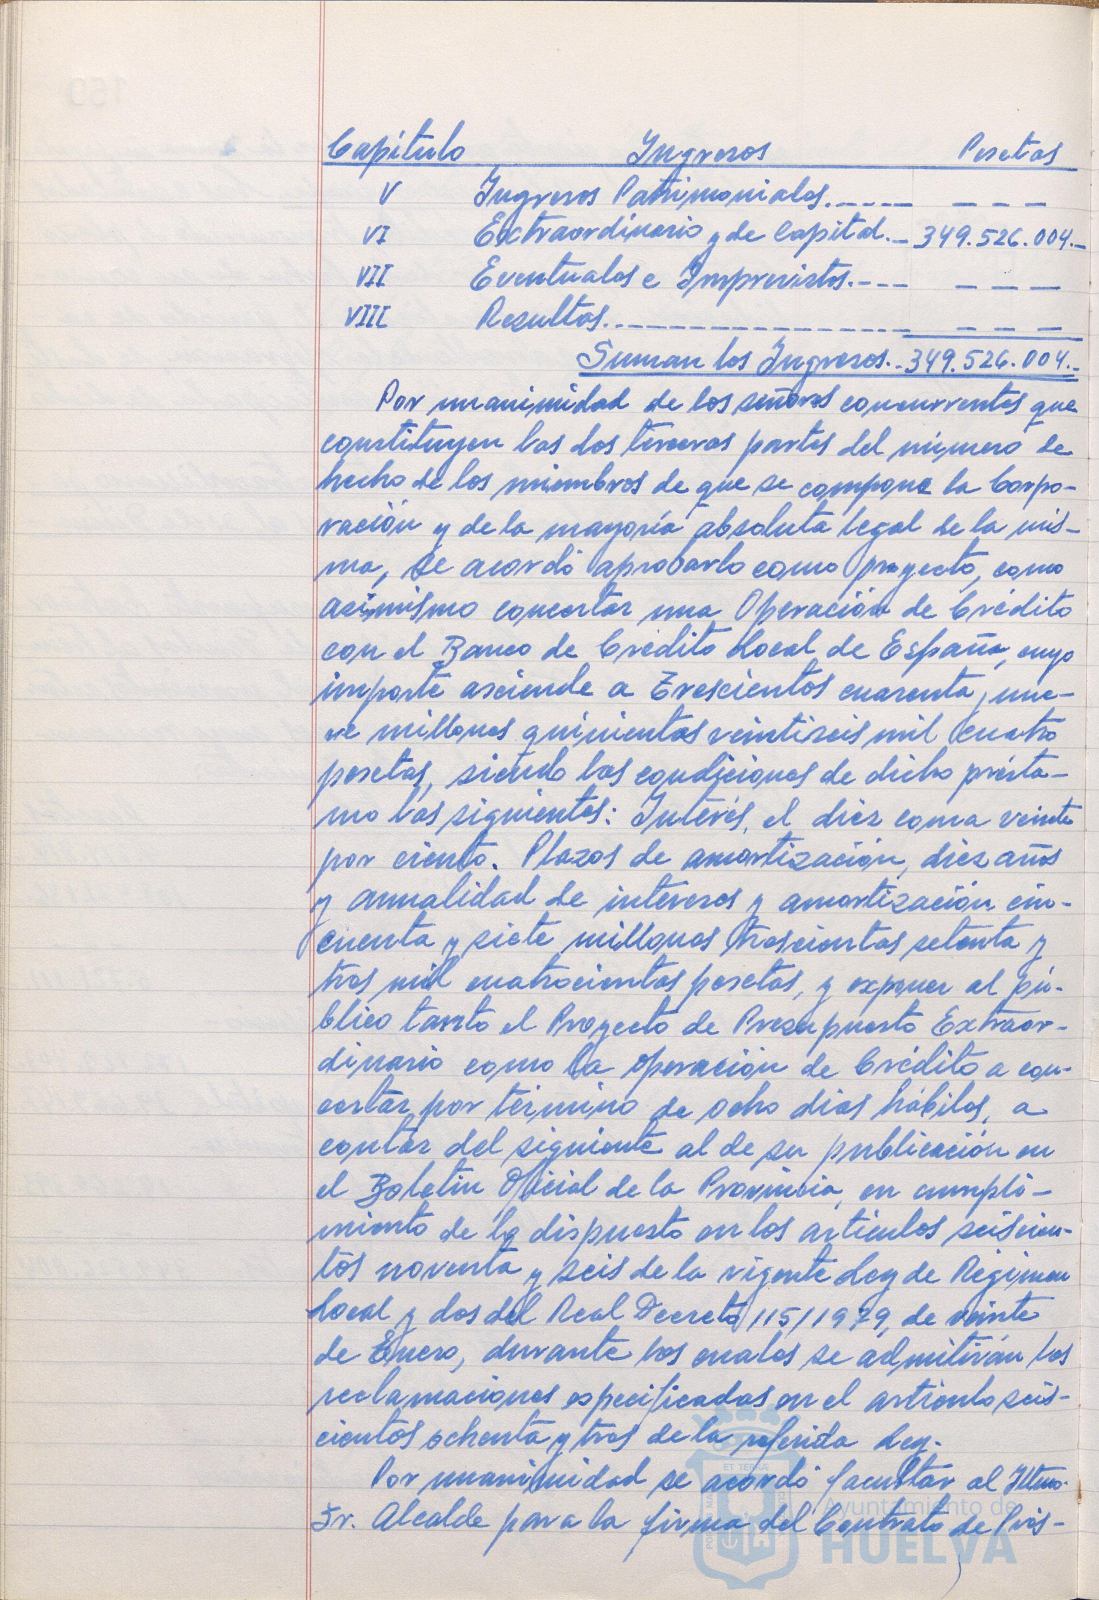 Capítulo Ingresos Pesetas
V Ingresos Patrimoniales.---- — — —
VI Extraordinario y de Capital.- 349.526.004.-
VII Eventuales e Imprevistos.--- — — —
VIII Resultas.---------------- — — —
Suman los Ingresos.- 349.526.004.-
Por unanimidad de los señores concurrentes que
constituyen las dos terceras partes del número de
hecho de los miembros de que se compone la Corpo-
ración y de la mayoría absoluta legal de la mis-
ma, se acordó aprobarlo como proyecto, como
asimismo concertar una Operación de Crédito
con el Banco de Crédito Local de España, cuyo
importe asciende a Trescientos cuarenta y nue-
ve millones quinientas veintiseis mil cuatro
pesetas, siendo las condiciones de dicho présta-
mo las siguientes: Interés, el diez coma veinte
por ciento. Plazos de amortización, diez años
y anualidad de intereses y amortización cin-
cuenta y siete millones trescientas setenta y
tres mil cuatrocientas pesetas, y exponer al pú-
blico tanto el Proyecto de Presupuesto Extraor-
dinario como la operación de Crédito a con-
certar por término de ocho dias hábiles, a
contar del siguiente al de su publicación en
el Boletin Oficial de la Provincia, en cumpli-
miento de lo dispuesto en los articulos seiscien-
tos noventa y seis de la vigente Ley de Régimen
Local y dos del Real Decreto 115/1979, de veinte
de Enero, durante los cuales se admitirán las
reclamaciones especificadas en el artículo seis-
cientos ochenta y tres de la referida Ley.
Por unanimidad se acordó facultar al Iltmo.
Sr. Alcalde para la firma del Contrato de Prés-
Ayuntamiento de
HUELVA